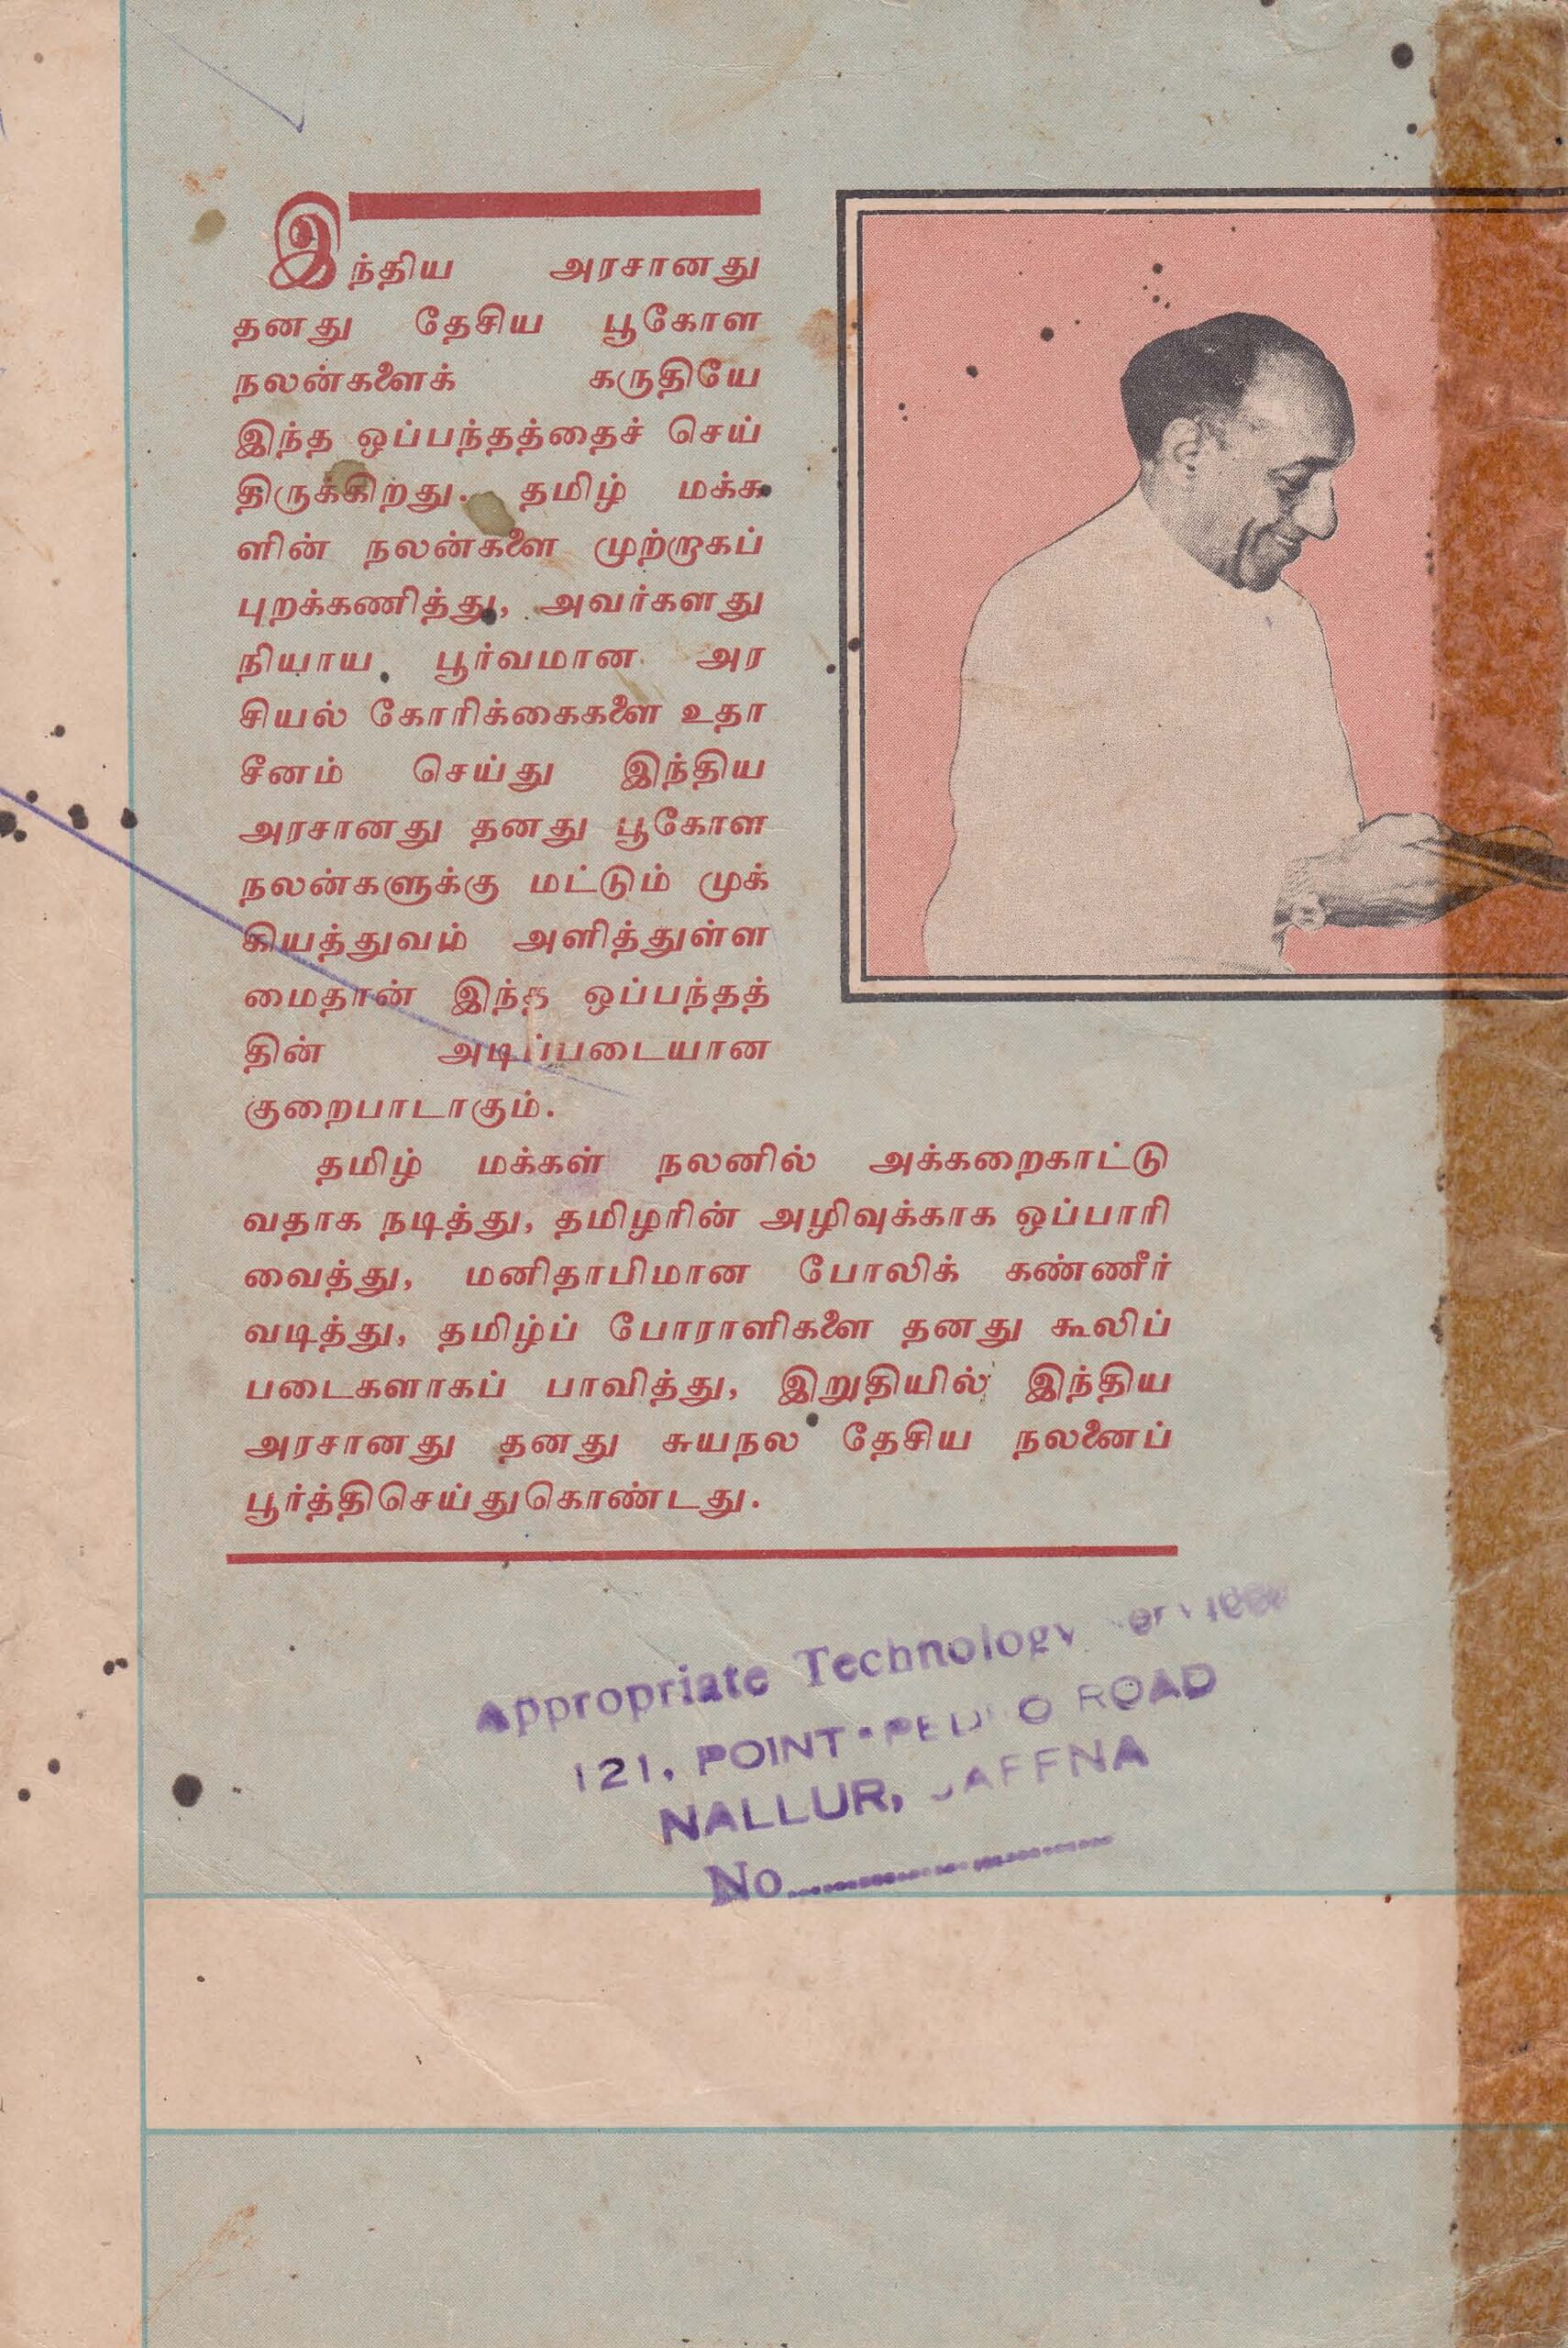 இந்திய அரசானது
தனது தேசிய பூகோள
நலன்களைக் கருதியே
இந்த ஒப்பந்தத்தைச் செய்
திருக்கிறது. தமிழ் மக்க
ளின் நலன்களை முற்றாகப்
புறக்கணித்து, அவர்களது
நியாய பூர்வமான அர
சியல் கோரிக்கைகளை உதா
சீனம் செய்து இந்திய
அரசானது தனது பூகோள
நலன்களுக்கு மட்டும் முக்
கியத்துவம் அளித்துள்ள
மைதான் இந்த ஒப்பந்தத்
தின் அடிப்படையான
குறைபாடாகும்.
தமிழ் மக்கள் நலனில் அக்கறைகாட்டு
வதாக நடித்து, தமிழரின் அழிவுக்காக ஒப்பாரி
வைத்து, மனிதாபிமான போலிக் கண்ணீர்
வடித்து, தமிழ்ப் போராளிகளை தனது கூலிப்
படைகளாகப் பாவித்து, இறுதியில் இந்திய
அரசானது தனது சுயநல தேசிய நலனைப்
பூர்த்திசெய்துகொண்டது.
Appropriate Technology Services
121, POINT-PEDRO ROAD
NALLUR, JAFFNA
No..............................